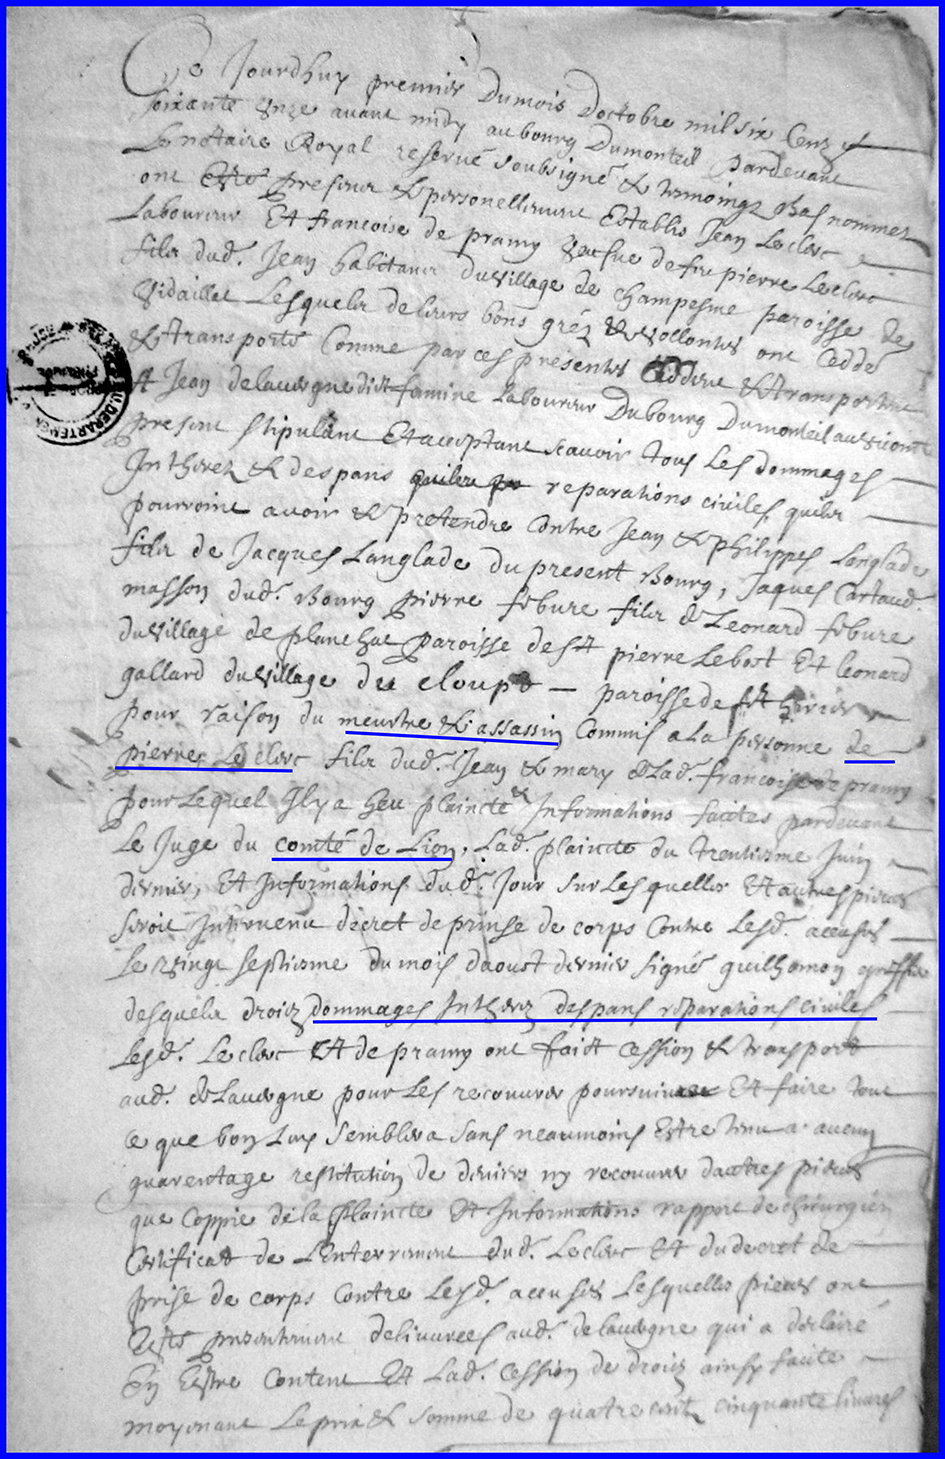 Ce Jourdhuy premier Dumois Doctobre mil six Cens et
Soixante Unze avant midy au bourg Dumonteil pardevant
Le notaire Royal reservé soubsigné & temoings bas nommes
ont Esté presens & personellement Establis Jean Leclerc
Laboureur Et francoise de pramy veufve de feu pierre Leclerc
fils dud. Jean habitans du village de champesme paroisse de
Vidaillat Lesquels de leurs bons gréz & vollontes ont Ceddé
& transporté Comme par ces presentes Ceddent & transportent
A Jean delauvergne dict famine Laboureur Dubourg Dumonteil au vicomte
present stipulant Et acceptant scavoir tous Les dommages
Intherez & despans reparations civiles quils
pourroint avoir & pretendre Contre Jean & philippes Langlade
fils de Jacques Langlade du present Bourg, Jaques Cartaud
masson dud. Bourg pierre febure fils d Leonard febure
du village de planchat paroisse de St pierre Lebost Et leonard
gallard du village du cloupt — paroisse de St
pour raison du meurtre & assassin Commis a La personne de
pierre Le clerc fils dud. Jean & mary d Lad. francoise de pramy
pour Lequel Il y a heu plaincte & Informations faictes pardevant
Le Juge du comté de Lion, Lad. plaincte du trentiesme Juin
dernier, Et Informations dud. Jour sur Lesquelles Et autres pieces
seroit Intervenu decret de prinse de corps Contre Lesd. accuses
Le vingt septiesme du mois daoust dernier signé guilhomon greffier
desquels droitz dommages Intherez despans reparations civiles
Lesd. Leclerc Et de pramy ont faict cession & transport
aud. delauvergne pour Les recouvrer poursuivre Et faire tout
ce que bon Luy semblera sans neaumoins Estre tenu a aucun
guarentage restitution de deniers ny recouvrer dautres pieces
que Coppie de la plaincte Et Informations rapport de chirurgien
Certificat de L'Enterrement dud. Leclerc Et du decret de
prise de corps Contre Lesd. accuses Lesquelles pieces ont
Estés presentement delivrees aud. de lauvergne qui a declaré
En Estre Content Et Lad. Cession de droitz ainsy faicte
moyenant Le prix & somme de quatre cents cinquante livres